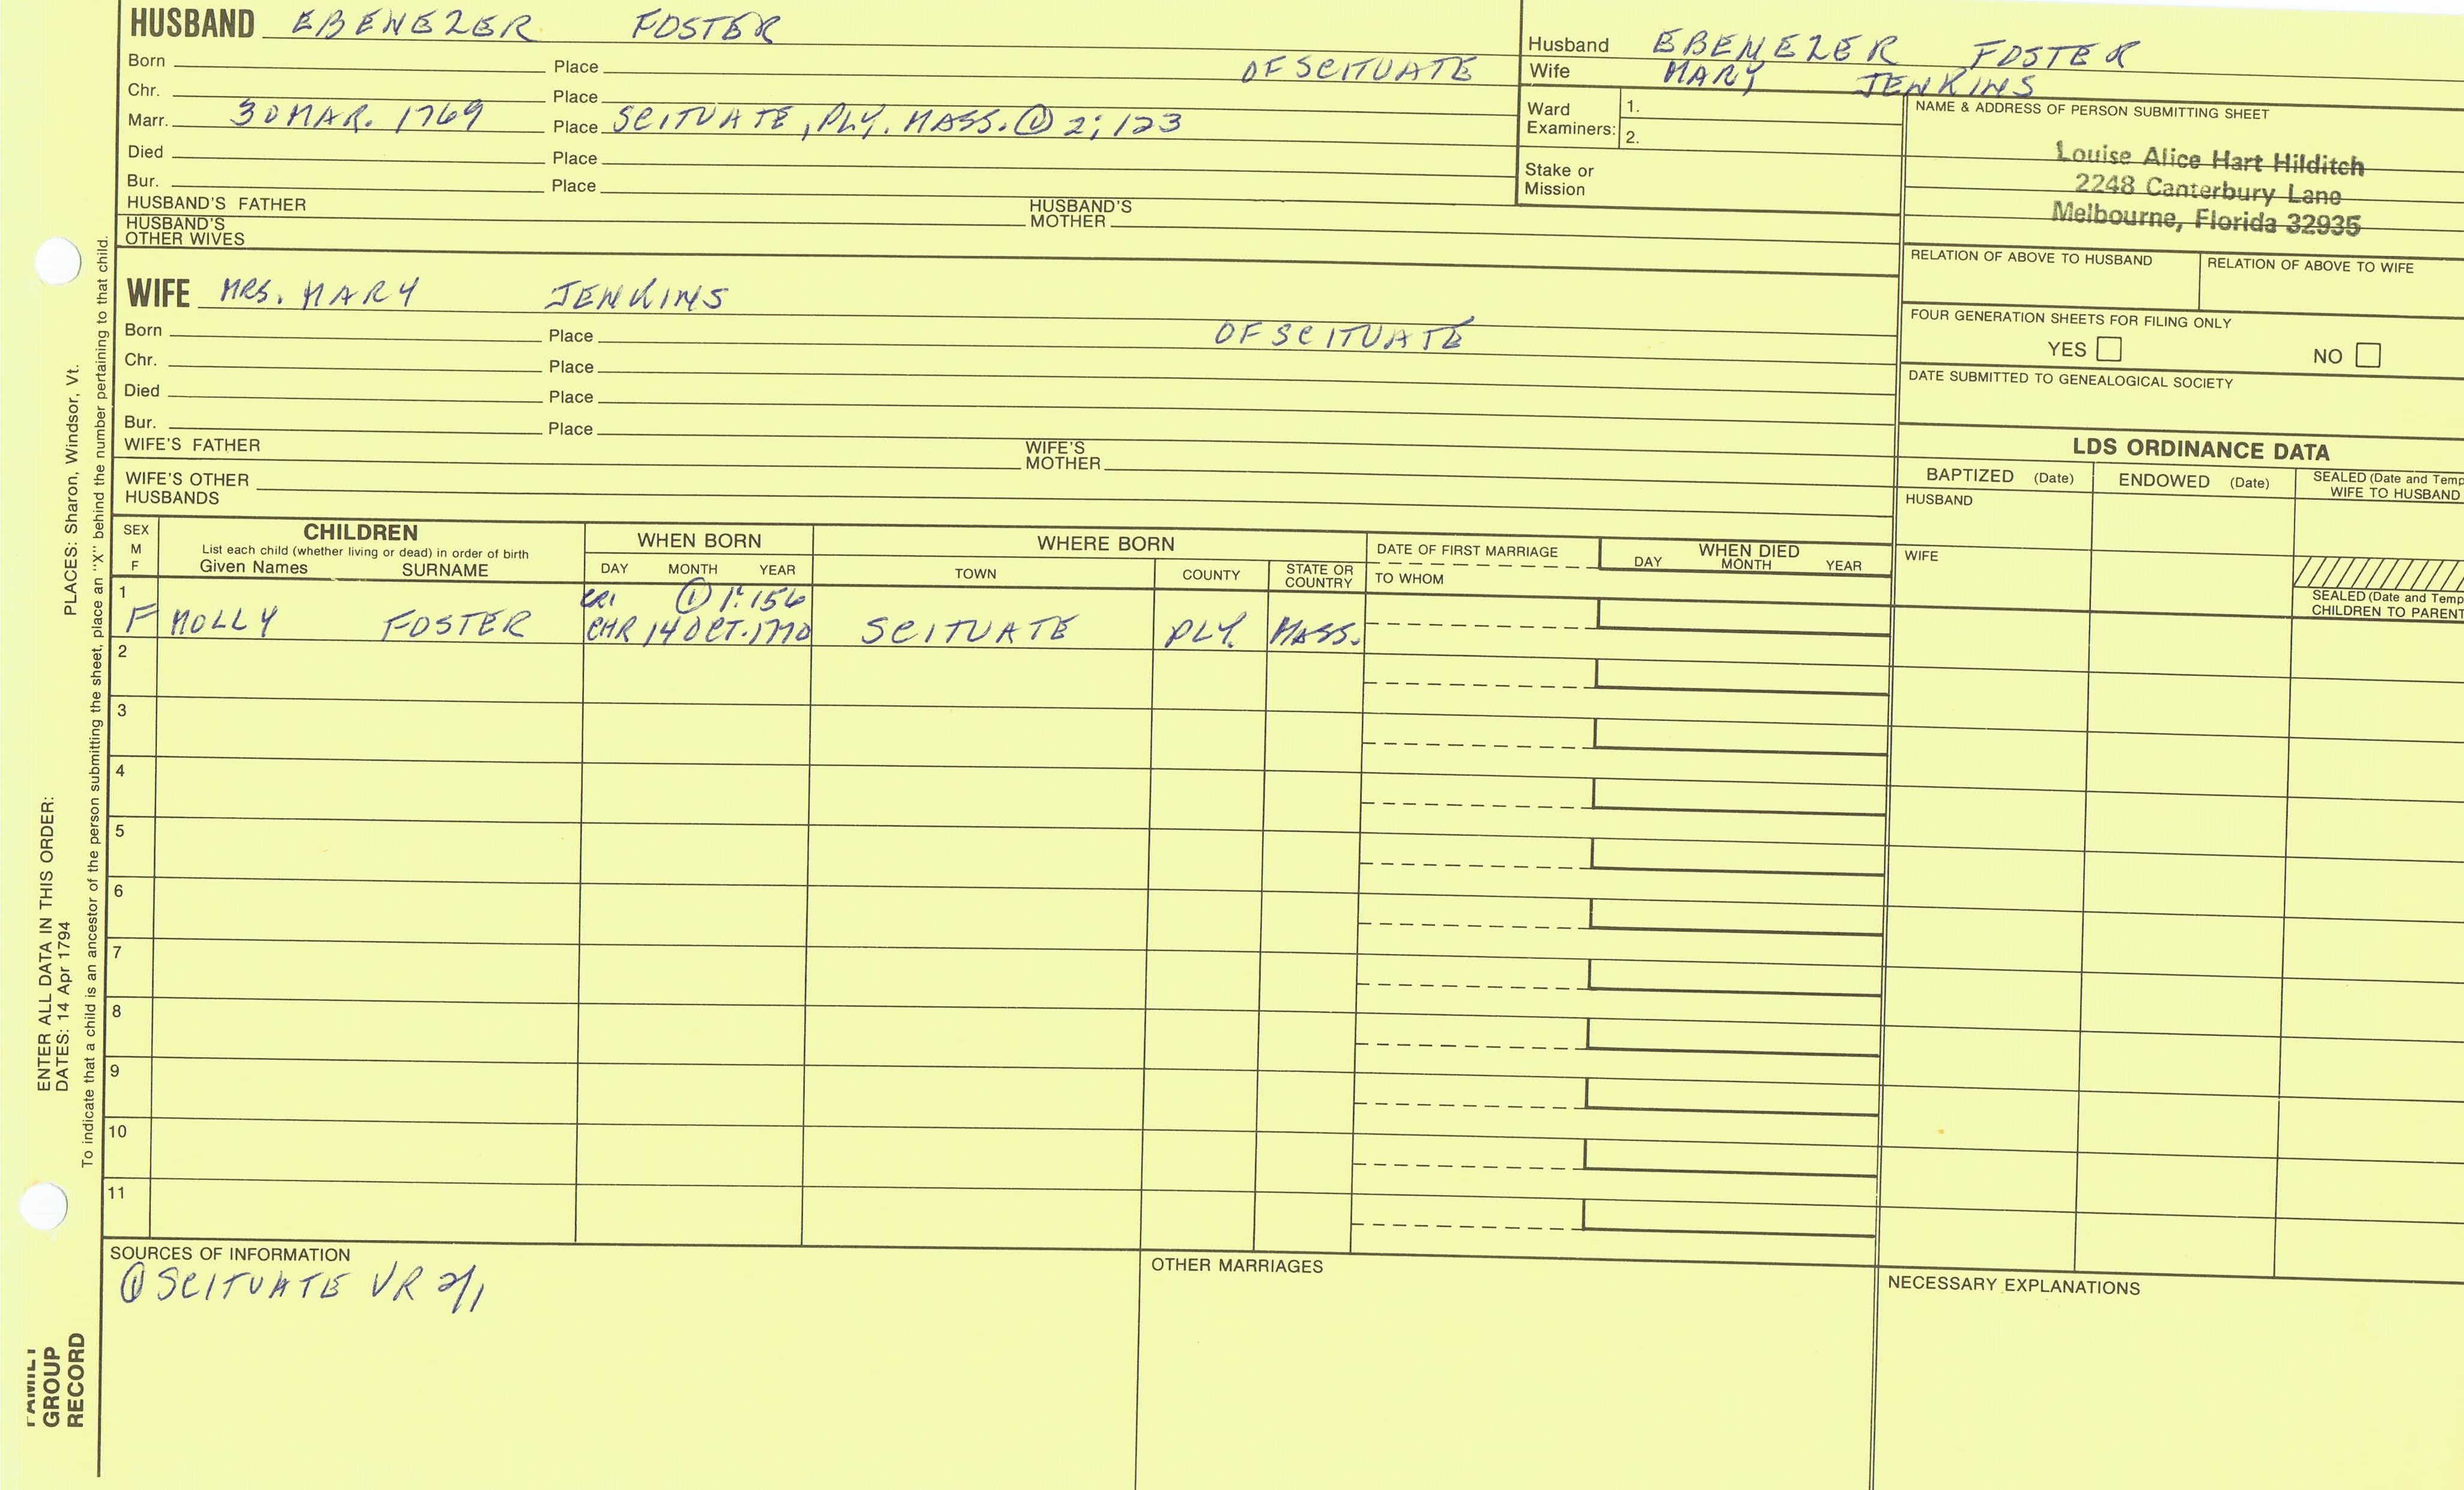 HUSBAND EBENEZER FOSTER
Born Place OF SCITUATE
Chr. Place
Marr. 30 MAR. 1769 Place SCITUATE, PLY. MASS. ① 2; 123
Died Place
Bur. Place
HUSBAND'S FATHER HUSBAND'S MOTHER
HUSBAND'S OTHER WIVES
Husband EBENEZER FOSTER
Wife MARY JENKINS
Ward Examiners: 1.
2.
Stake or Mission
NAME & ADDRESS OF PERSON SUBMITTING SHEET
Louise Alice Hart Hilditch
2248 Canterbury Lane
Melbourne, Florida 32935
RELATION OF ABOVE TO HUSBAND RELATION OF ABOVE TO WIFE
FOUR GENERATION SHEETS FOR FILING ONLY
YES NO
DATE SUBMITTED TO GENEALOGICAL SOCIETY
WIFE MRS. MARY JENKINS
Born Place OF SCITUATE
Chr. Place
Died Place
Bur. Place
WIFE'S FATHER WIFE'S MOTHER
WIFE'S OTHER HUSBANDS
LDS ORDINANCE DATA
BAPTIZED (Date) ENDOWED (Date) SEALED (Date and Temp
WIFE TO HUSBAND
HUSBAND
WIFE
SEALED (Date and Temp
CHILDREN TO PARENT
SEX M F
CHILDREN
List each child (whether living or dead) in order of birth
Given Names SURNAME
WHEN BORN
DAY MONTH YEAR
WHERE BORN
TOWN COUNTY STATE OR COUNTRY
DATE OF FIRST MARRIAGE
TO WHOM
WHEN DIED
DAY MONTH YEAR
1 CR1 ① 1:156
F MOLLY FOSTER CHR 14 OCT. 1770 SCITUATE PLY. MASS.
2
3
4
5
6
7
8
9
10
11
SOURCES OF INFORMATION
① SCITUATE VR 2/1
OTHER MARRIAGES
NECESSARY EXPLANATIONS
ENTER ALL DATA IN THIS ORDER:
DATES: 14 Apr 1794 PLACES: Sharon, Windsor, Vt.
To indicate that a child is an ancestor of the person submitting the sheet, place an "X" behind the number pertaining to that child.
FAMILY
GROUP
RECORD